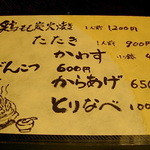 鶏もも炭火焼 1人前 1200円
たたき 1人前 900円
かわす 小鉢 4
げんこつ 600円
からあげ 650
とりなべ 1000